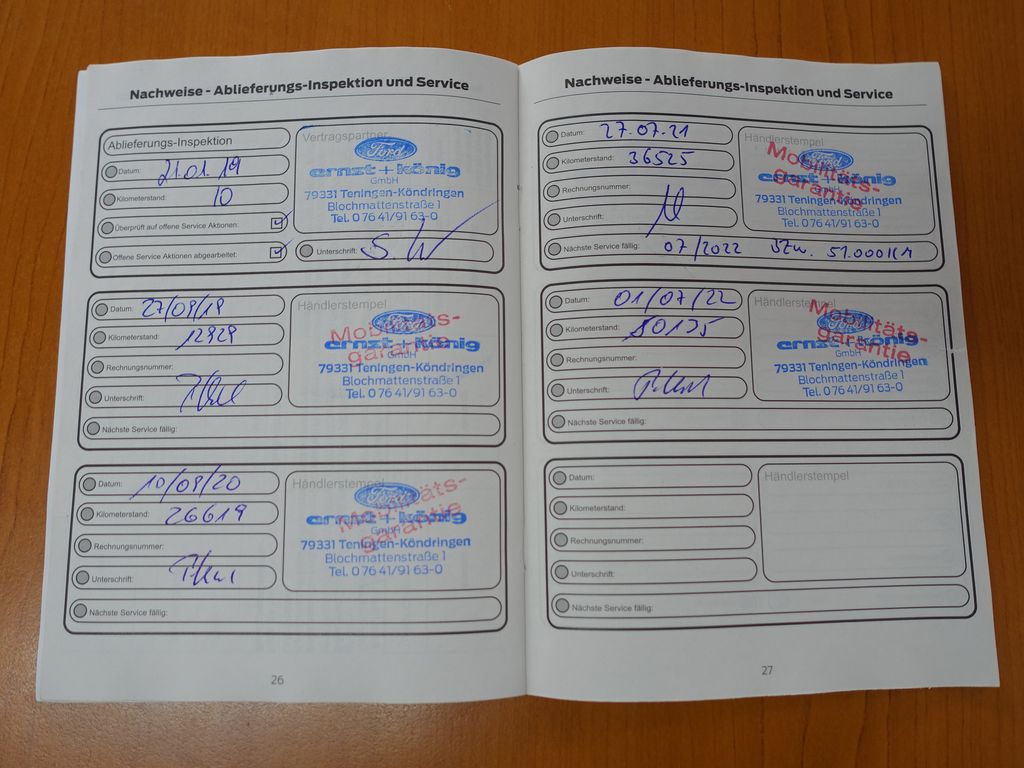 Nachweise - Ablieferungs-Inspektion und Service
Ablieferungs-Inspektion
Datum: 21.01.19
Kilometerstand: 10
Überprüft auf offene Service Aktionen:
Offene Service Aktionen abgearbeitet:
Vertragspartner
Ford
ernst + könig
GmbH
79331 Teningen-Köndringen
Blochmattenstraße 1
Tel. 0 76 41/91 63-0
Unterschrift: S. W
Datum: 27/09/19
Kilometerstand: 12929
Rechnungsnummer:
Unterschrift:
Nächste Service fällig:
Händlerstempel
Mobilitäts-
garantie
Ford
ernst + könig
GmbH
79331 Teningen-Köndringen
Blochmattenstraße 1
Tel. 0 76 41/91 63-0
Datum: 10/09/20
Kilometerstand: 26619
Rechnungsnummer:
Unterschrift:
Nächste Service fällig:
Händlerstempel
Mobilitäts-
garantie
Ford
ernst + könig
GmbH
79331 Teningen-Köndringen
Blochmattenstraße 1
Tel. 0 76 41/91 63-0
26
Nachweise - Ablieferungs-Inspektion und Service
Datum: 27.07.21
Kilometerstand: 36525
Rechnungsnummer:
Unterschrift:
Nächste Service fällig: 07/2022 bzw. 51.000KM
Händlerstempel
Mobilitäts-
garantie
Ford
ernst + könig
GmbH
79331 Teningen-Köndringen
Blochmattenstraße 1
Tel. 0 76 41/91 63-0
Datum: 01/07/22
Kilometerstand: 50135
Rechnungsnummer:
Unterschrift:
Nächste Service fällig:
Händlerstempel
Mobilitäts-
garantie
Ford
ernst + könig
GmbH
79331 Teningen-Köndringen
Blochmattenstraße 1
Tel. 0 76 41/91 63-0
Datum:
Kilometerstand:
Rechnungsnummer:
Unterschrift:
Nächste Service fällig:
Händlerstempel
27